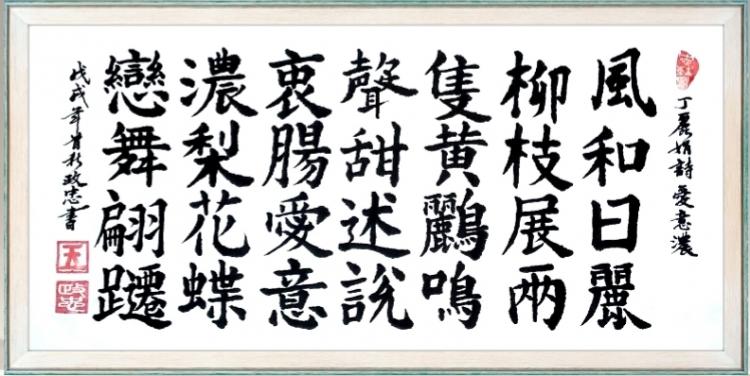 丁麗娟詩愛意濃
風和日麗
柳枝展兩
隻黄鸝鳴
聲甜述説
衷腸愛意
濃梨花蝶
戀舞翩躚
戊戌年首秋政忠書
政忠